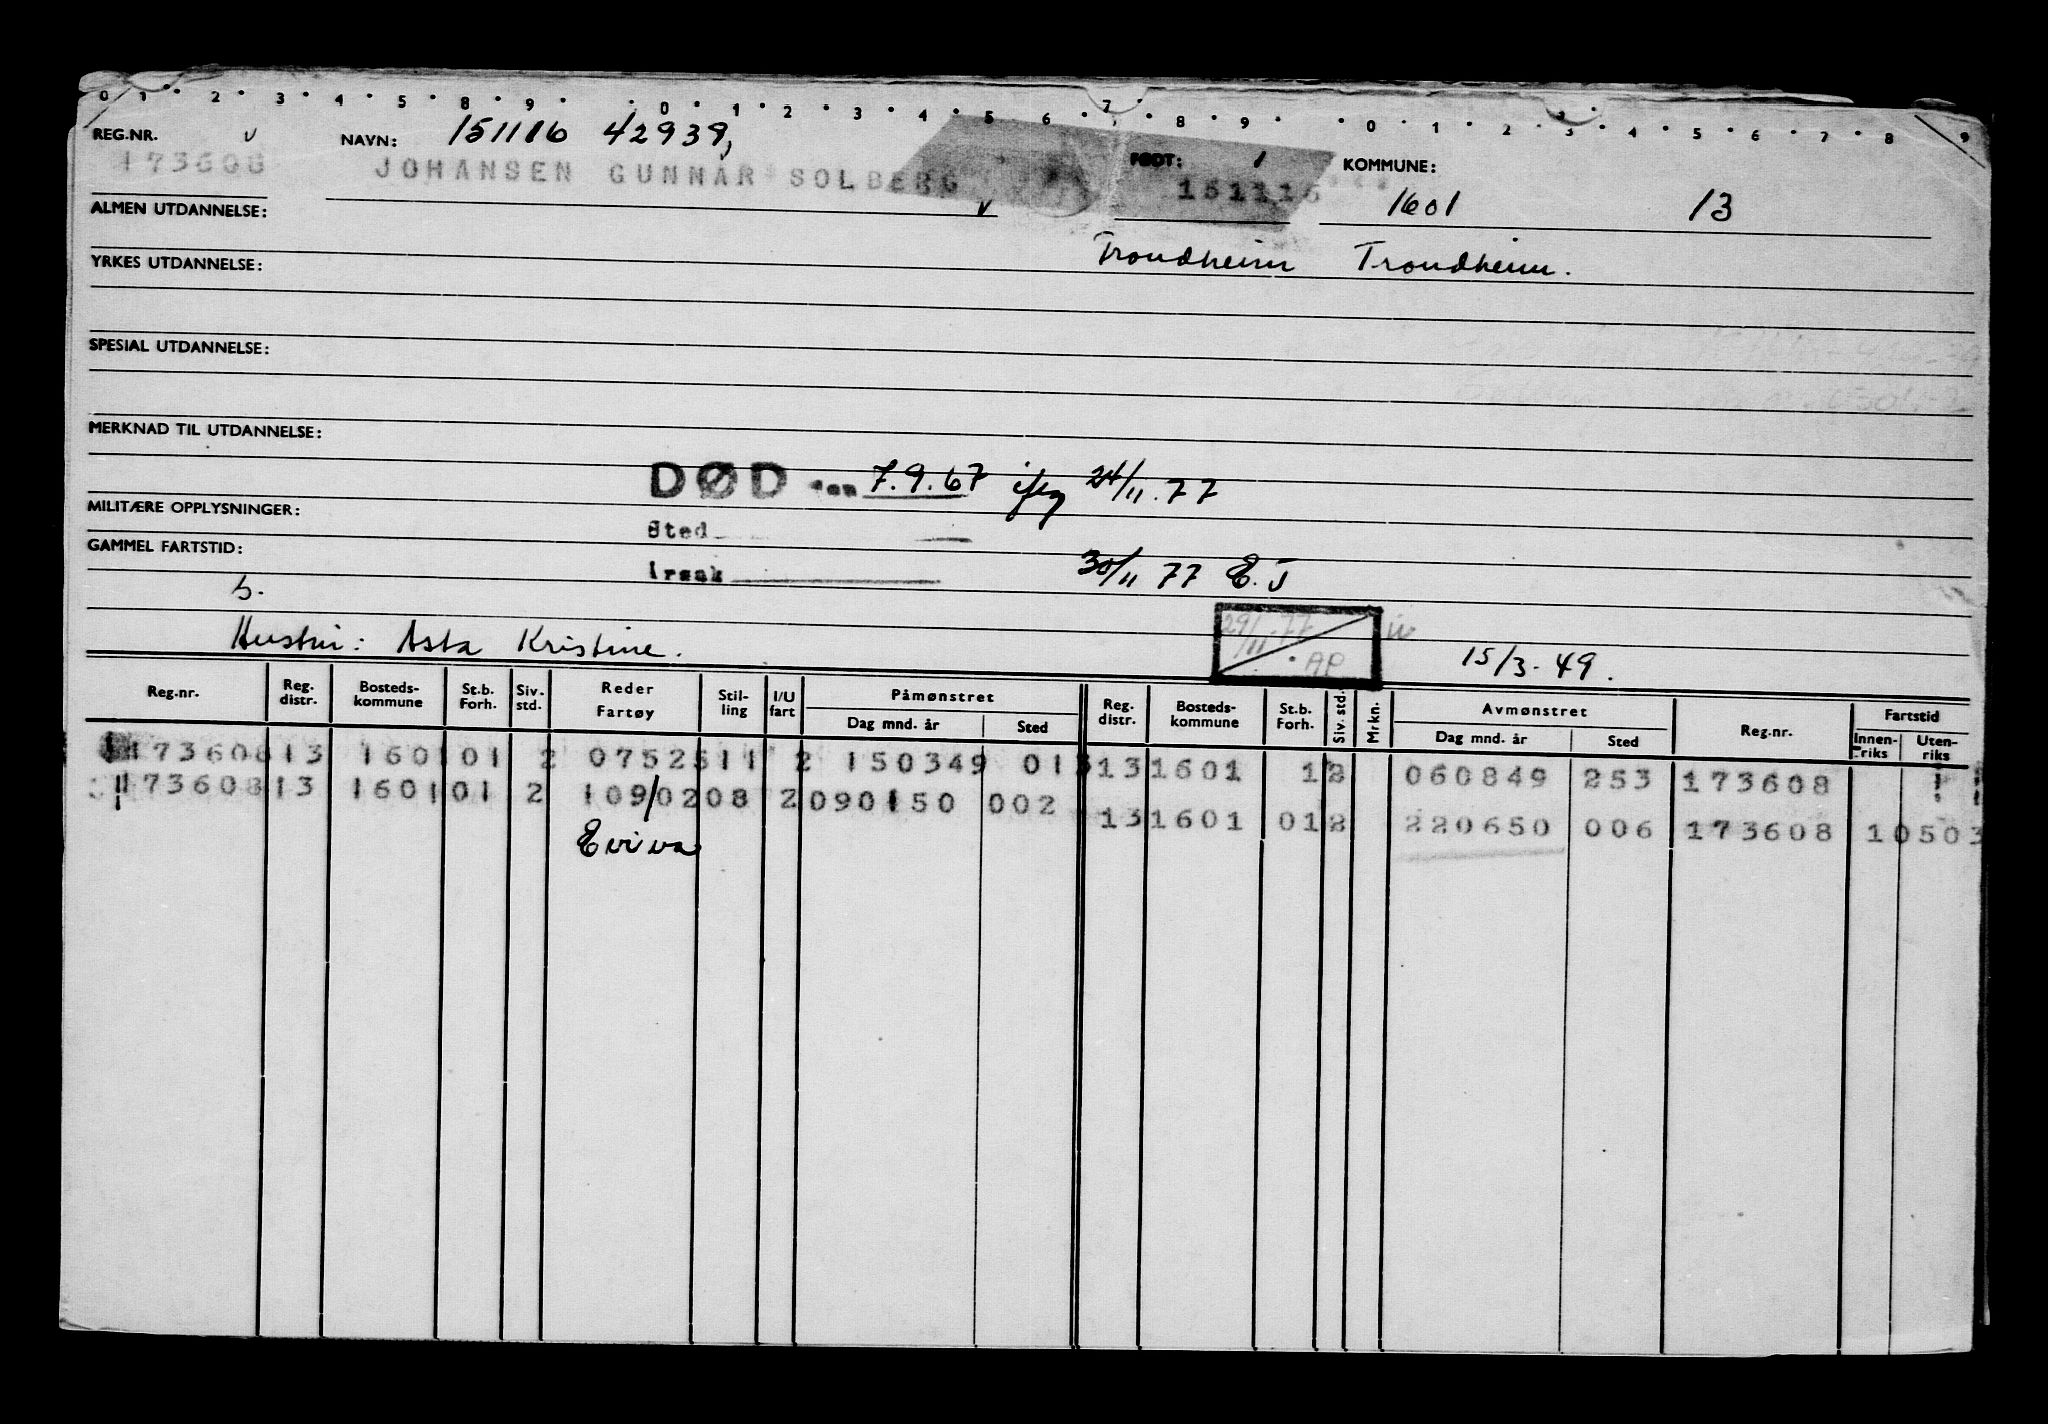 0 1 2 3 4 5 8 9 0 1 2 3 4 5 6 7 8 9 0 1 2 3 4 5 6 7 8 9
REG.NR. NAVN: 151116 42939, FØDT: KOMMUNE:
173608 JOHANSEN GUNNAR SOLBERG 151116 1601 13
ALMEN UTDANNELSE:
Trondheim Trondheim.
YRKES UTDANNELSE:
SPESIAL UTDANNELSE:
MERKNAD TIL UTDANNELSE:
DØD den 7.9.67 ifølg 24/11.77
MILITÆRE OPPLYSNINGER:
Sted
GAMMEL FARTSTID:
Årsak 30/11 77 E.J
S.
29/11.77 AP
Hustru: Asta Kristine. 15/3-49.
Reg.nr. Reg. distr. Bosteds-kommune St.b. Forh. Siv. std. Reder Fartøy Stil-ling I/U fart Påmønstret Dag mnd. år Sted Reg. distr. Bosteds-kommune St.b. Forh. Siv. std. Mrkn. Avmønstret Dag mnd. år Sted Reg.nr. Fartstid Innen-riks Uten-riks
173608 13 1601 01 2 0752511 2 150349 013 13 1601 1 2 060849 253 173608
173608 13 1601 01 2 109/0208 2 090150 002 13 1601 01 2 220650 006 173608 10503
Eviva